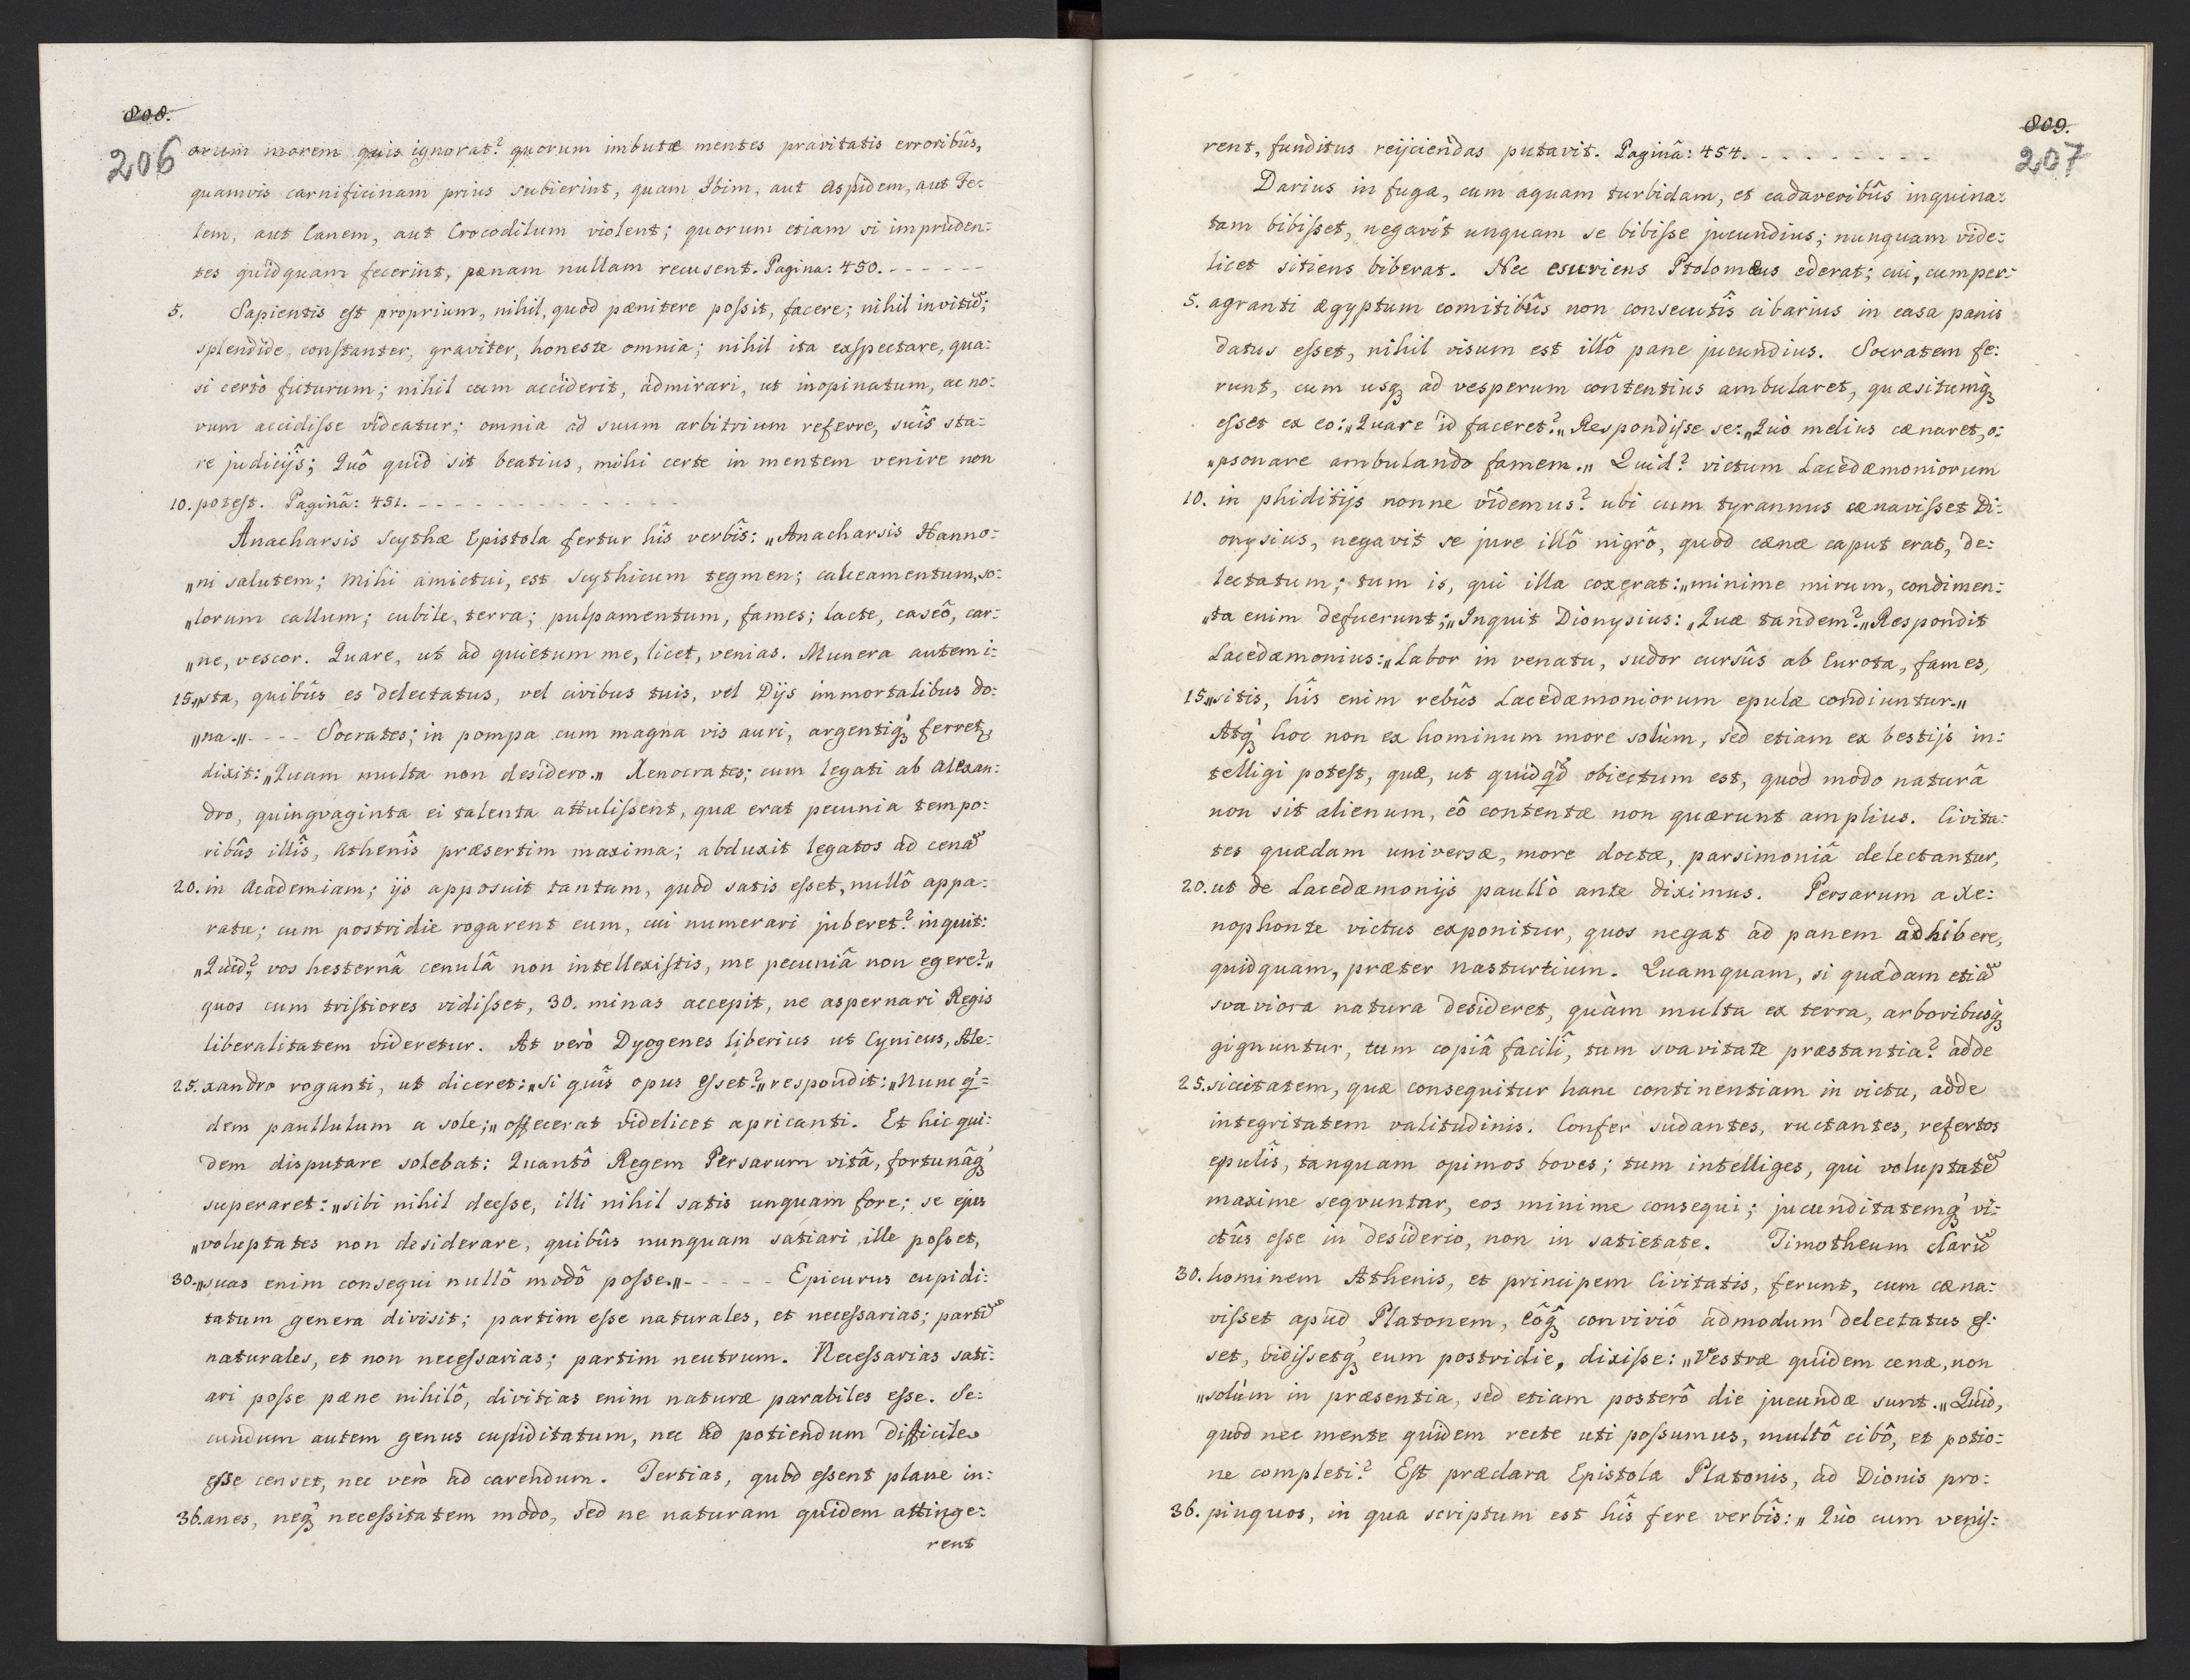 808.
206
orum morem quis ignorat? quorum imbutæ mentes pravitatis erroribûs,
quamvis carnificinam prius subierint, quam Ibim, aut aspidem, aut Fe:
lem, aut Canem, aut Crocodilum violent; quorum etiam si impruden:
tes quidquam fecerint, pænam nullam recusent. Pagina: 450. - - - - - -
5. Sapientis eſt proprium, nihil, quod pænitere poſsit, facere; nihil invitũ;
splendide, conſtanter, graviter, honeste omnia; nihil ita exſpectare, qua:
si certò futurum; nihil cum acciderit, admirari, ut inopinatum, ac no:
vum accidiſse videatur; omnia ad suum arbitrium referre, suîs sta:
re judicijs; Quô quid sit beatius, mihi certe in mentem venire non
10. poteſt. Paginâ: 451. - - - - - - - - - - - - -
Anacharsis Scythæ Epistola fertur hîs verbîs: „Anacharsis Hanno:
„ni salutem; Mihi amictui, est Scythicum tegmen; calceamentum, so:
„lorum callum; cubile, terra; pulpamentum, fames; lacte, caseô, car:
„ne, vescor. Quare, ut ad quietum me, licet, venias. Munera autem i:
15. „sta, quibûs es delectatus, vel civibus tuis, vel Dijs immortalibus do:
„na.„ - - - Socrates; in pompa cum magna vis auri, argentiq; ferret,
dixit: „Quam multa non desidero.„ Xenocrates; cum legati ab Alexan:
dro, quingvaginta ei talenta attuliſsent, quæ erat pecunia tempo:
ribûs illîs, Athenîs præsertim maxima; abduxit legatos ad cenã
20. in Academiam; ijs apposuit tantum, quod satis eſset, nullô appa:
ratu; cum postridie rogarent eum, cui numerari juberet? inquit:
„Quid? vos hesternâ cenulâ non intellexiſtis, me pecuniâ non egere?„
quos cum triſtiores vidiſset, 30. minas accepit, ne aspernari Regis
liberalitatem videretur. At verò Dyogenes liberius ut Cynicus, Ale:
25. xandro roganti, ut diceret: „Si quîs opus eſset?„ respondit: „Nunc q̃=
dem paullulum a sole;„ offecerat videlicet apricanti. Et hic qui:
dem disputare solebat: Quantô Regem Persarum vitâ, fortunâq;
superaret: „sibi nihil deeſse, illi nihil satis unquam fore; se ejus
„voluptates non desiderare, quibûs nunquam satiari ille poſset,
30. „suas enim consequi nullô modô poſse.„ - - - - - Epicurus cupidi:
tatum genera divisit; partim eſse naturales, et neceſsarias; partĩ
naturales, et non neceſsarias; partim neutrum. Neceſsarias sati:
ari poſse pæne nihilô, divitias enim naturæ parabiles eſse. Se:
cundum autem genus cupiditatum, nec ad potiendum difficiles
eſse censet, nec verò ad carendum. Tertias, quod eſsent plane in:
36. anes, neq; neceſsitatem modo, sed ne naturam quidem attinge:
rent
809.
207
rent, funditus reijciendas putavit. Paginâ: 454. - - - - - - - - -
Darius in fuga, cum aquam turbidam, et cadaveribûs inquina:
tam bibiſset, negavit unquam se bibiſse jucundius; nunquam vide:
licet sitiens biberat. Nec esuriens Ptolomæus ederat; cui, cum per:
5. agranti Ægyptum comitibûs non consecutîs cibarius in casa panis
datus eſset, nihil visum est illô pane jucundius. Socratem fe:
runt, cum usq; ad vesperum contentius ambularet, quæsitumq;
eſset ex eo: „Quare id faceret?„ Respondiſse se: „Quò melius cænaret, o:
„psonare ambulando famem.„ Quid? victum Lacedæmoniorum
10. in phiditijs nonne videmus? ubi cum tyrannus cænaviſset Di:
onysius, negavit se jure illô nigrô, quod cænæ caput erat, de:
lectatum; tum is, qui illa coxerat: „minime mirum, condimen:
„ta enim defuerunt;„ Inquit Dionysius: „Quæ tandem?„ Respondit
Lacedæmonius: „Labor in venatu, sudor cursûs ab Eurota, fames,
15. „sitis, hîs enim rebûs Lacedæmoniorum epulæ condiuntur.„
Atq; hoc non ex hominum more solùm, sed etiam ex bestijs in:
telligi poteſt, quæ, ut quidq̃d obiectum est, quod modo naturâ
non sit alienum, eô contentæ non quærunt amplius. Civita:
tes quædam universæ, more doctæ, parsimoniâ delectantur,
20. ut de Lacedæmonijs paullò ante diximus. Persarum a Xe:
nophonte victus exponitur, quos negat ad panem adhibere,
quidquam, præter nasturtium. Quamquam, si quædam etiã
svaviora natura desideret, quàm multa ex terra, arboribusq;
gignuntur, tum copiâ facilî, tum svavitate præstantia? adde
25. siccitatem, quæ consequitur hanc continentiam in victu, adde
integritatem valitudinis. Confer sudantes, ructantes, refertos
epulîs, tanquam opimos boves; tum intelliges, qui voluptatẽ
maxime seqvuntur, eos minime consequi; jucunditatemq; vi:
ctûs eſse in desiderio, non in satietate. Timotheum clarũ
30. hominem Athenis, et principem Civitatis, ferunt, cum cæna:
viſset apud Platonem, eôq; conviviô admodum delectatus eſ:
set, vidiſsetq; eum postridie, dixiſse: „Vestræ quidem cænæ, non
„solùm in præsentia, sed etiam posterô die jucundæ sunt.„ Quid,
quod nec mente quidem recte uti poſsumus, multô cibô, et potio:
ne completi? Eſt præclara Epistola Platonis, ad Dionis pro:
36. pinquos, in qua scriptum est hîs fere verbîs: „Quò cum veniſ: